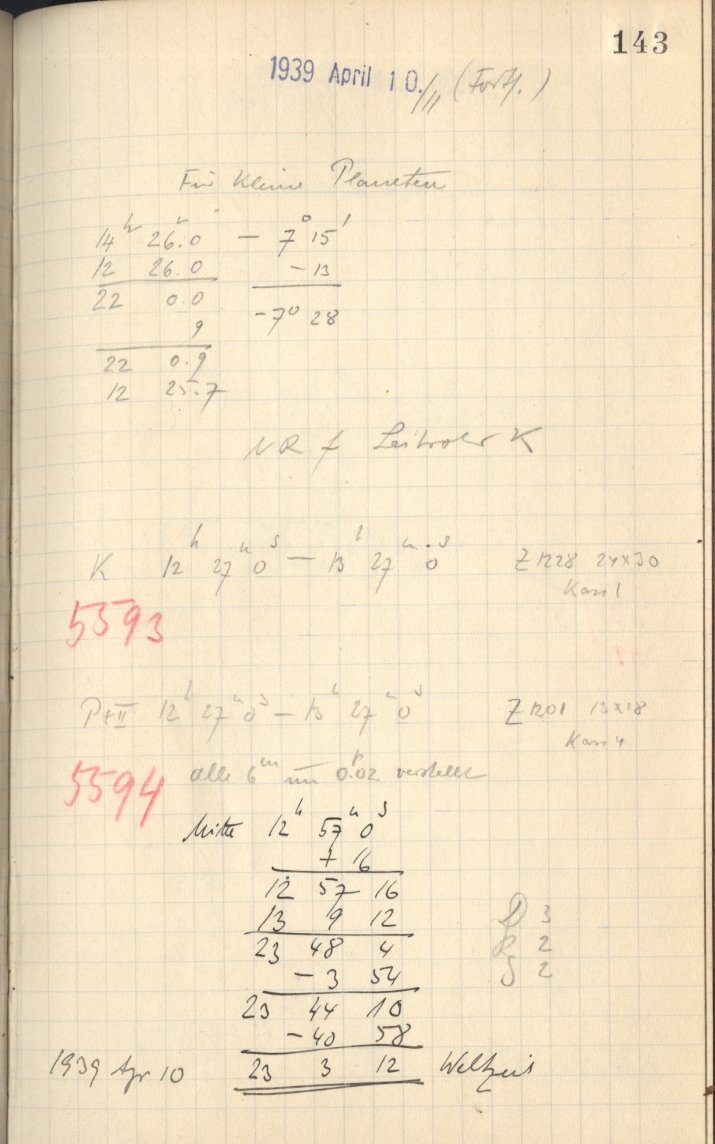 143
1939 April 10./11 (Fortf.)
Für Kleine Planeten
14h 26.0 — 7° 15'
12 26.0 — 13
22 0.0 — 7° 28
9
22 0.9
12 25.7
f Leitrohr K
K 12h 27m 0s — 13h 27m 0s Z 1228 24x30
Kass 1
5593
12h 27m 0s — 13h 27m 0s Z 1201 13x18
Kass 4
alle 6m um 0.02 verstellt
5594
Mitte 12h 57m 0s
+ 16
12 57 16
13 9 12
23 48 4
— 3 54
23 44 10
— 40 58
1939 Apr 10 23 3 12 Weltzeit
D 3
R 2
S 2